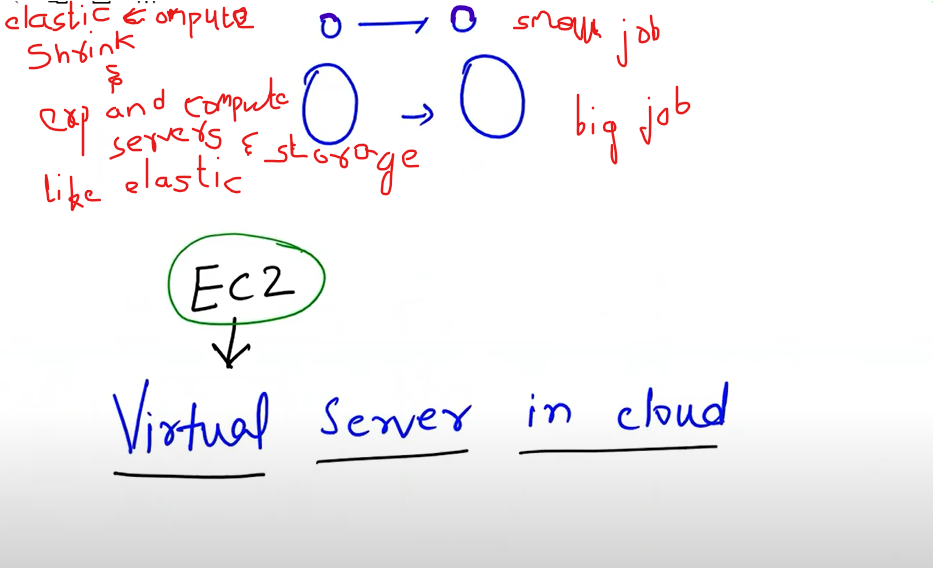 elastic compute
small job
Shrink
&
expand compute
servers & storage
like elastic
big job
EC2
Virtual Server in cloud